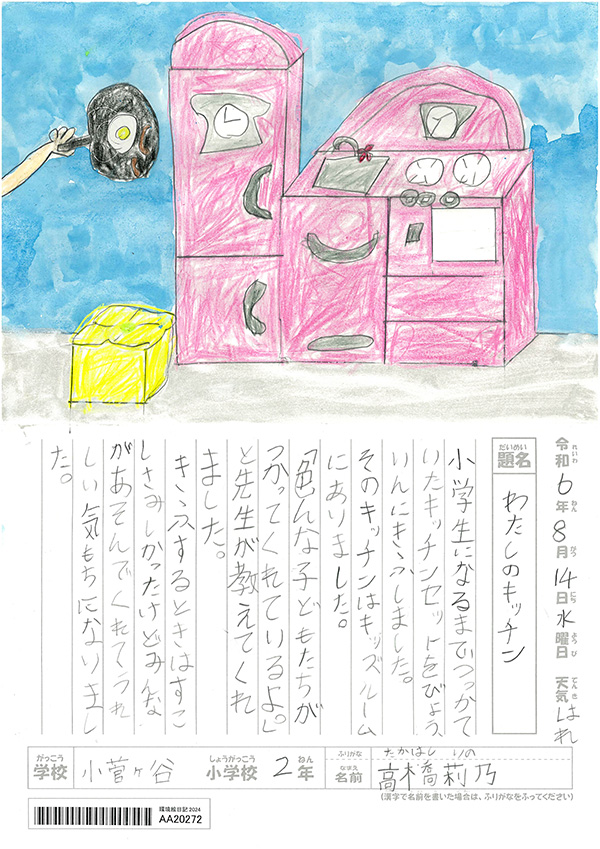 令和6年8月14日水曜日 天気はれ
れいわ ねん がつ にち ようび てんき
だいめい
題名 わたしのキッチン
小学生になるまでつかって
いたキッチンセットをびょう
いんにきふしました。
そのキッチンはキッズルーム
にありました。
「色んな子どもたちが
つかってくれているよ。」
と先生が教えてくれ
ました。
きふするときはすこ
しさみしかったけどみんな
があそんでくれてうれ
しい気もちになりまし
た。
がっこう しょうがっこう ねん
学校 小菅ヶ谷 小学校 2年
ふりがな たかはし りの
なまえ
名前 高橋莉乃
(漢字で名前を書いた場合は、ふりがなをふってください)
環境絵日記2024
AA20272